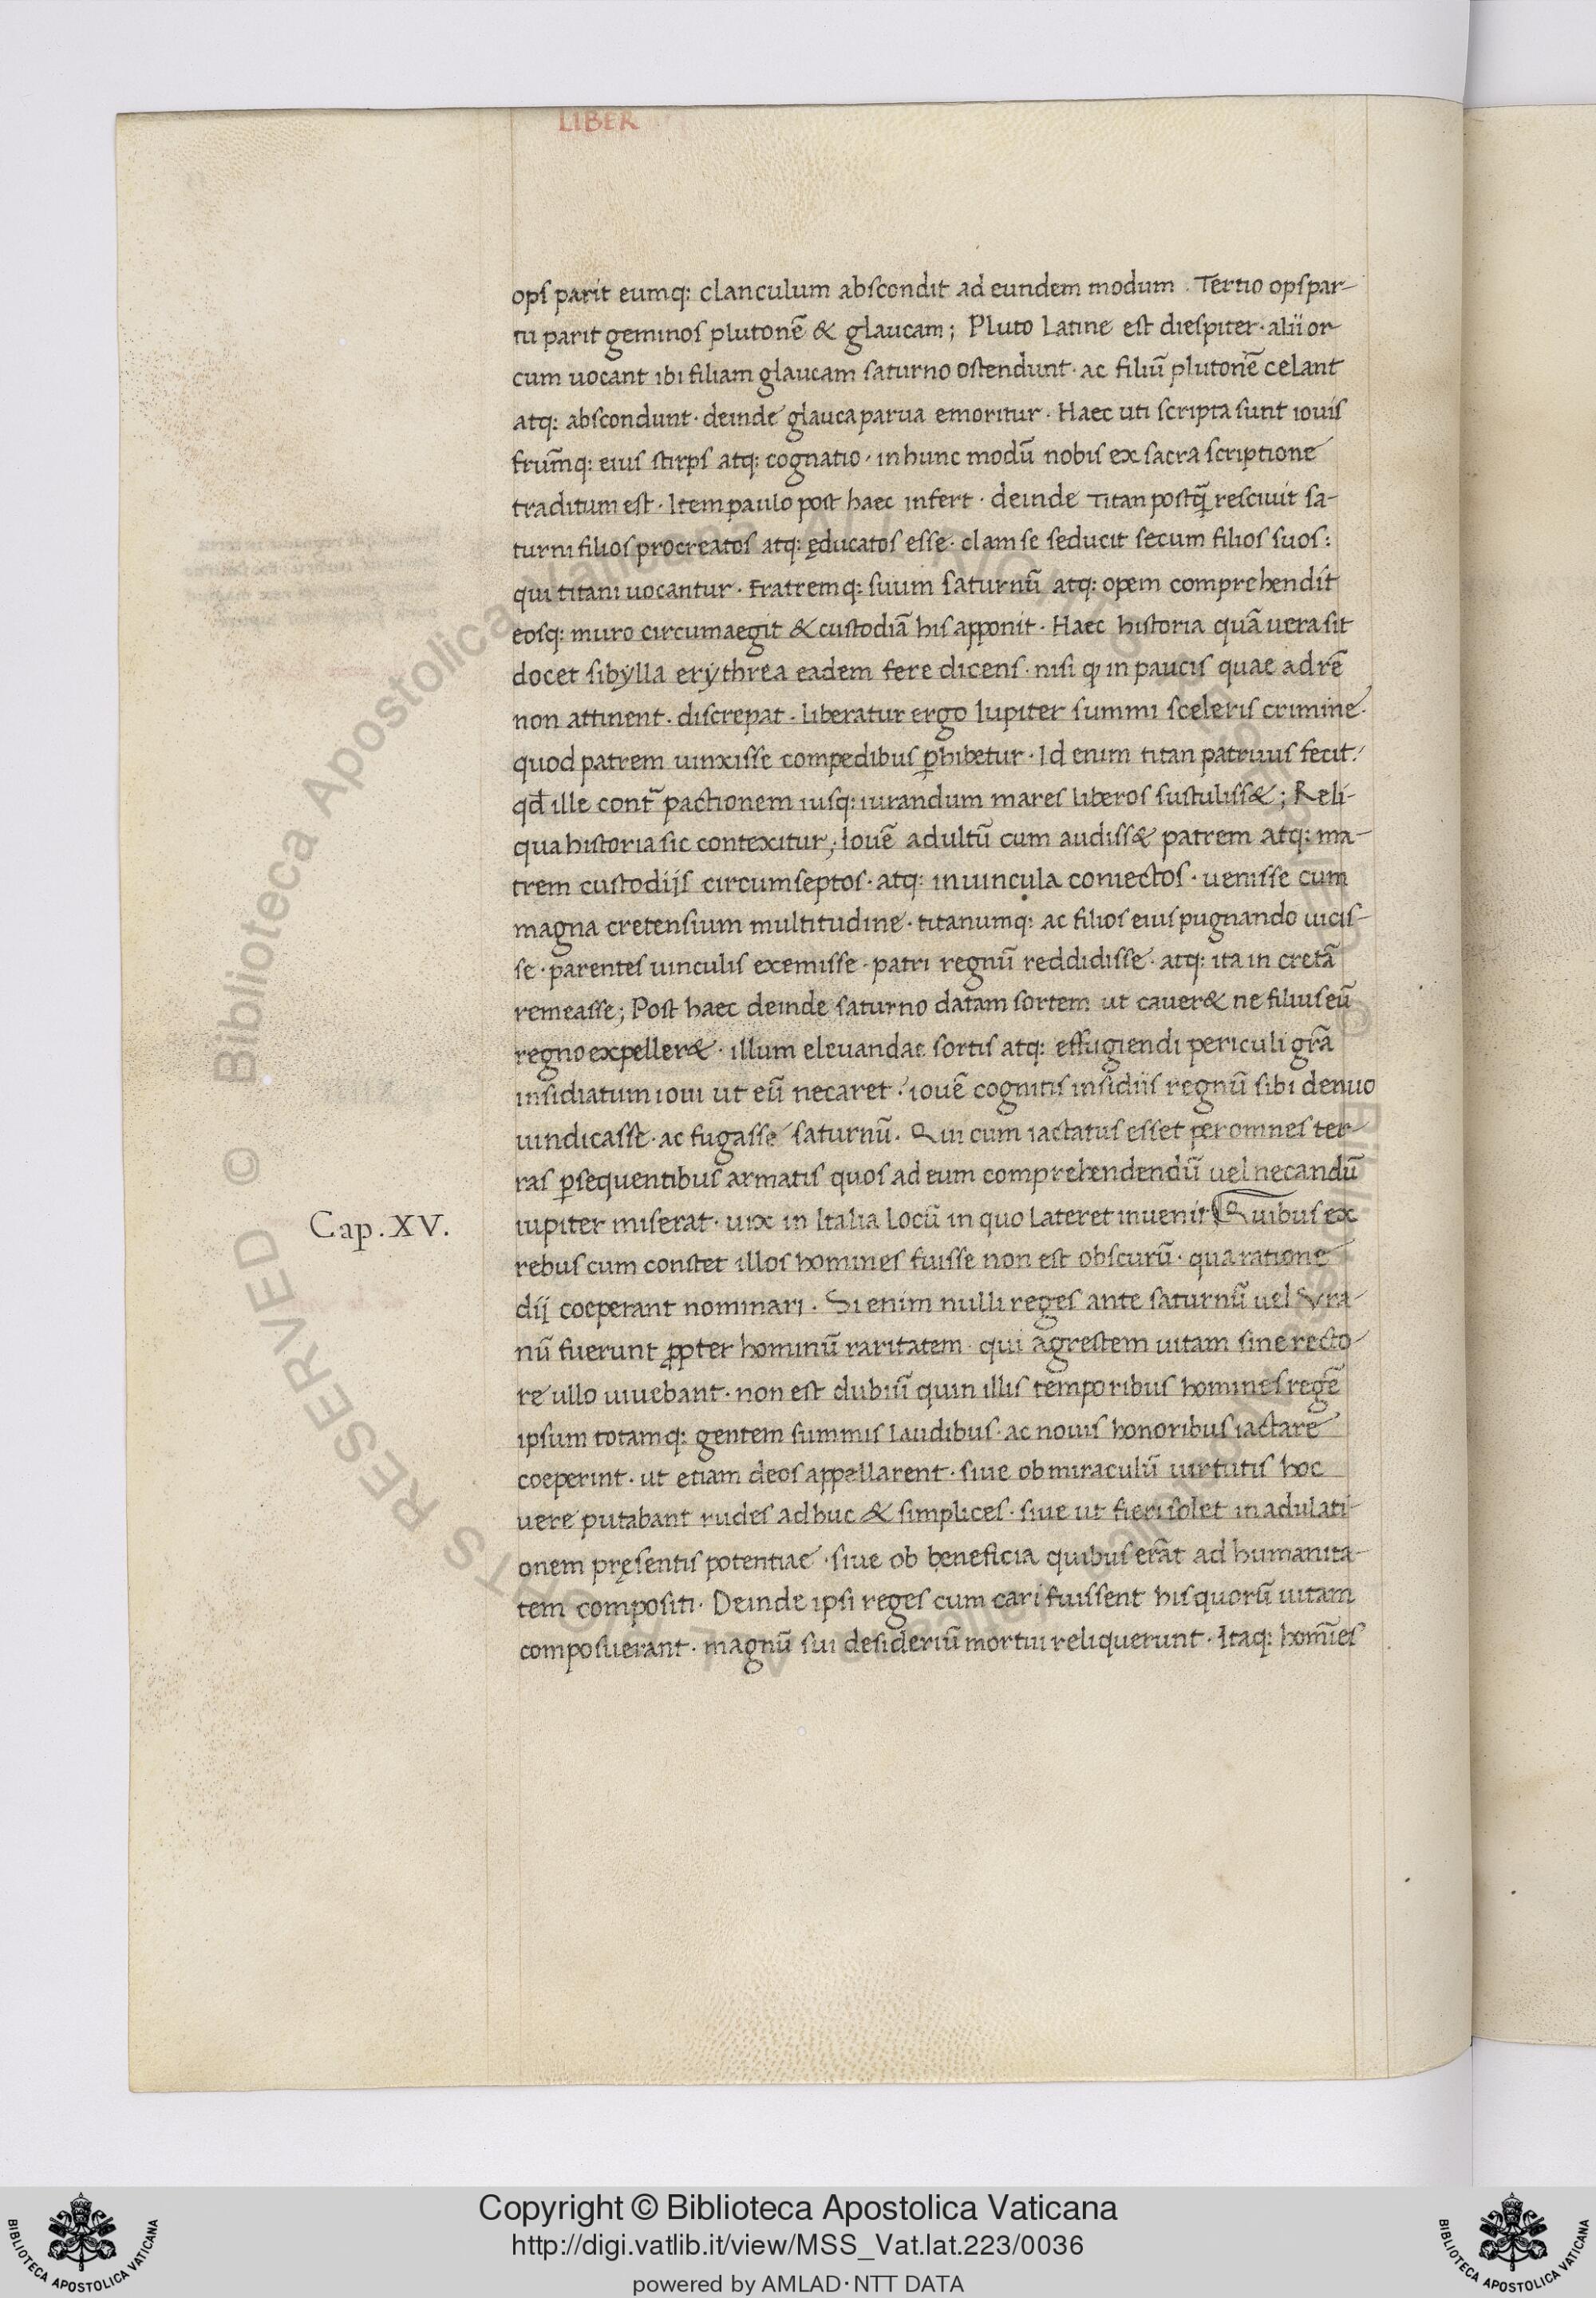 LIBER
opſ parit eumq: clanculum abſcondit ad eundem modum . Tertio opſpar-
tu parit geminoſ plutonē & glaucam; Pluto Latine eſt dieſpiter · alii or-
cum uocant ibi filiam glaucam ſaturno oſtendunt · ac filiū plutonē celant
atq: abſcondunt · deinde glauca parua emoritur · Haec uti ſcripta ſunt iouiſ
frūmq: eiuſ ſtirpſ atq: cognatio · in hunc modū nobiſ ex ſacra ſcriptione
traditum eſt · Item paulo poſt haec infert · deinde Titan poſtq̄ reſciuit ſa-
turni filioſ procreatoſ atq: ęducatoſ eſſe · clam ſe ſeducit ſecum filioſ ſuoſ:
qui titani uocantur · fratremq: ſuum ſaturnū atq: opem comprehendit
eoſq: muro circumaegit & cuſtodiā hiſ apponit · Haec hiſtoria quā uera ſit
docet ſibÿlla erÿthrea eadem fere dicenſ · niſi ꝙ in pauciſ quae ad rē
non attinent · diſcrepat · liberatur ergo Iupiter ſummi ſceleriſ crimine ·
quod patrem uinxiſſe compedibuſ ꝑhibetur · Id enim titan patruuſ fecit ·
qđ ille contr̄ pactionem iuſq: iurandum mareſ liberoſ ſuſtuliſſ&; Reli-
qua hiſtoria ſic contexitur; Iouē adultū cum audiſſ& patrem atq: ma-
trem cuſtodijſ circumſeptoſ · atq: in uincula coniectoſ · ueniſſe cum
magna cretenſium multitudine · titanumq: ac filioſ eiuſ pugnando uiciſ-
ſe · parenteſ uinculiſ exemiſſe · patri regnū reddidiſſe · atq: ita in cretā
remeaſſe; Poſt haec deinde ſaturno datam ſortem ut cauer& ne filiuſ eū
regno expeller& · illum eleuandae ſortiſ atq: effugiendi periculi grā
inſidiatum ioui ut eū necaret · iouē cognitiſ inſidiiſ regnū ſibi denuo
uindicaſſe · ac fugaſſe ſaturnū · Qui cum iactatuſ eſſet per omneſ ter-
raſ ꝑſequentibuſ armatiſ quoſ ad eum comprehendendū uel necandū
Cap. XV.
iupiter miſerat · uix in Italia Locū in quo Lateret inuenit Quibuſ ex
rebuſ cum conſtet illoſ homineſ fuiſſe non eſt obſcurū · qua ratione
dij coeperant nominari · Si enim nulli regeſ ante ſaturnū uel Vra-
nū fuerunt ꝓpter hominū raritatem · qui agreſtem uitam ſine recto-
re ullo uiuebant · non eſt dubiū quin illiſ temporibuſ homineſ regē
ipſum totamq: gentem ſummiſ Laudibuſ · ac nouiſ honoribuſ iactare
coeperint · ut etiam deoſ appellarent · ſiue ob miraculū uirtutiſ hoc
uere putabant rudeſ adhuc & ſimpliceſ · ſiue ut fieri ſolet in adulati-
onem pręſentiſ potentiae · ſiue ob beneficia quibuſ erāt ad humanita-
tem compoſiti · Deinde ipſi regeſ cum cari fuiſſent hiſ quorū uitam
compoſuerant · magnū ſui deſideriū mortui reliquerunt · Itaq: homīeſ
© Biblioteca Apostolica Vaticana
ALL RIGHTS RESERVED
Copyright © Biblioteca Apostolica Vaticana
http://digi.vatlib.it/view/MSS_Vat.lat.223/0036
powered by AMLAD·NTT DATA
BIBLIOTECA APOSTOLICA VATICANA
BIBLIOTECA APOSTOLICA VATICANA